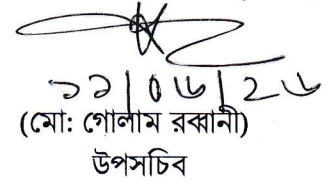 ১১/০৬/২৬
(মো: গোলাম রব্বানী)
উপসচিব